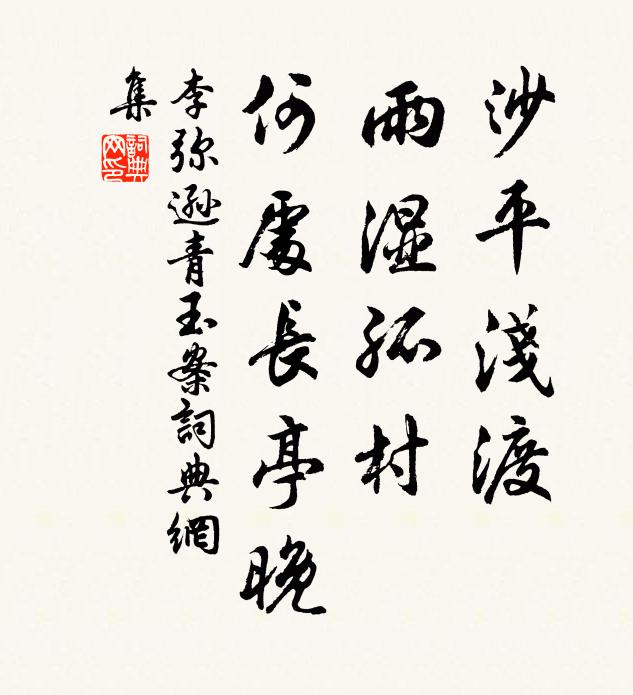 沙平淺渡
雨湿孤村
何處長亭晚
李弥遜青玉案詞典網
集
詞典
网印